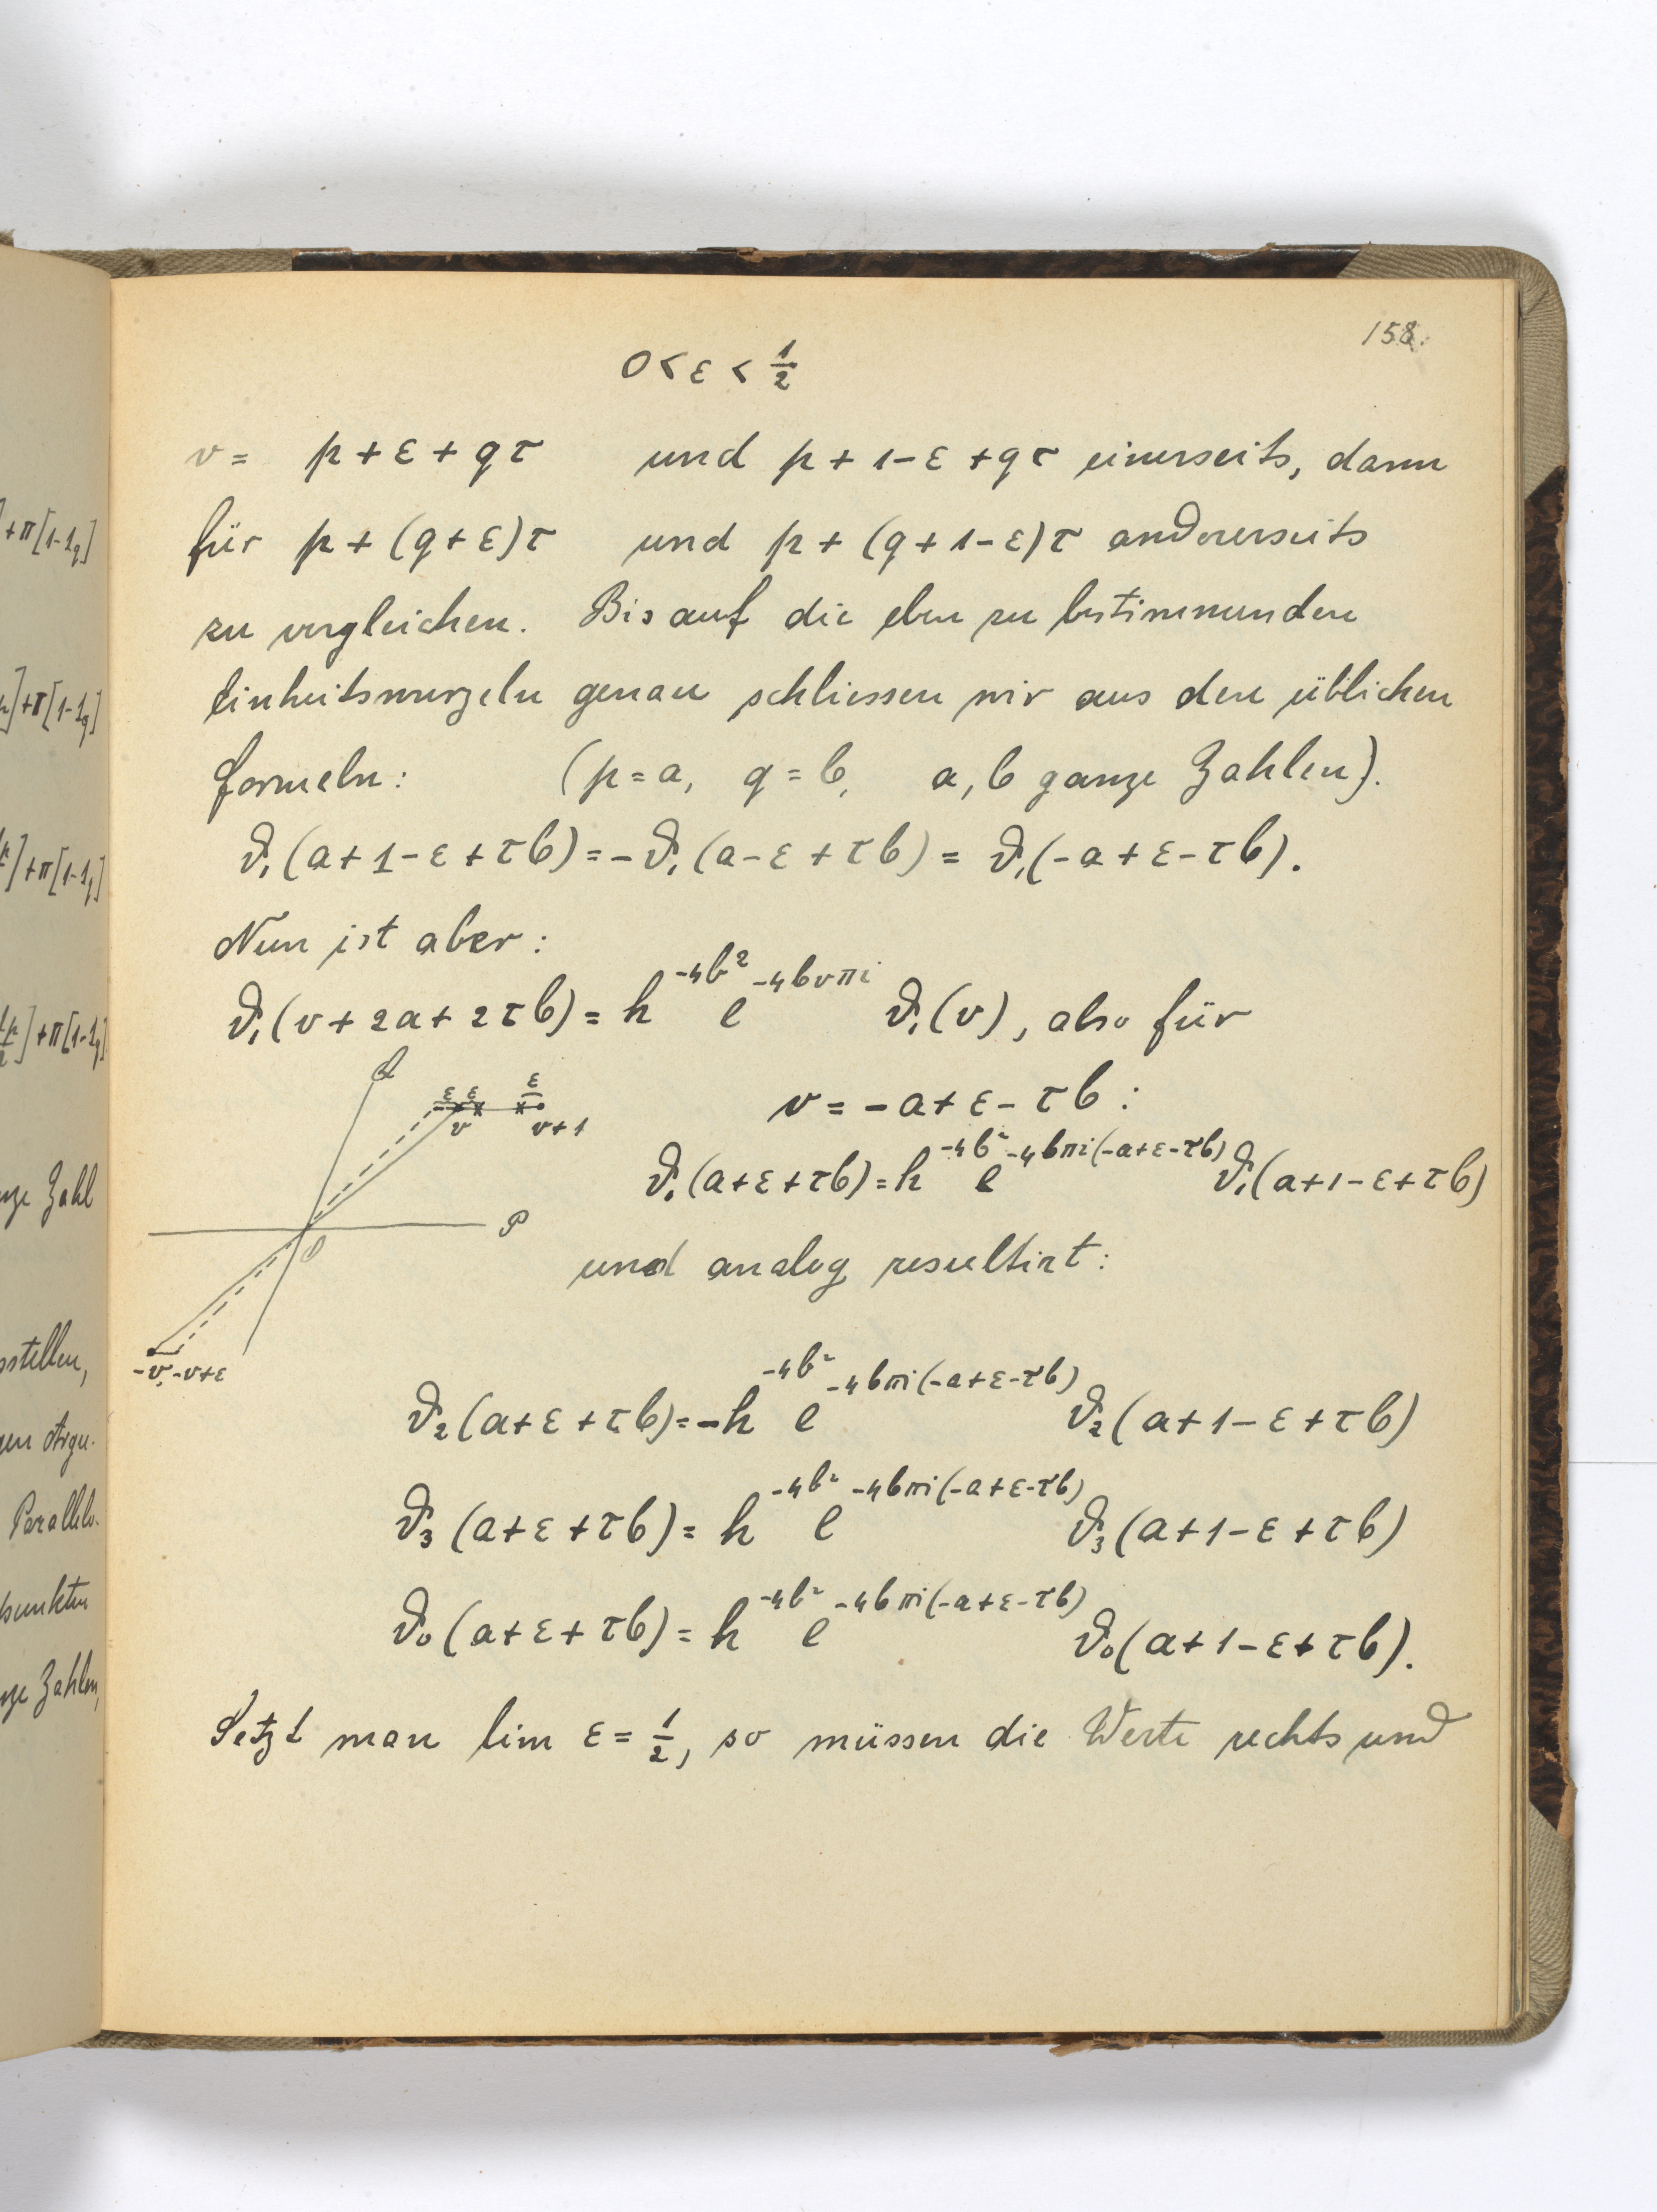 158.
0 < ε < 1/2
v = p + ε + qτ und p + 1 - ε + qτ einerseits, dann
für p + (q + ε)τ und p + (q + 1 - ε)τ andererseits
zu vergleichen. Bis auf die eben zu bestimmenden
Einheitswurzeln genau schliessen wir aus den üblichen
Formeln: (p = a, q = b, a, b ganze Zahlen).
ϑ₁(a + 1 - ε + τb) = -ϑ₁(a - ε + τb) = ϑ₁(-a + ε - τb).
Nun ist aber:
ϑ₁(v + 2a + 2τb) = h^{-4b²} e^{-4bvπi} ϑ₁(v), also für
v = -a + ε - τb:
ϑ₁(a + ε + τb) = h^{-4b²} e^{-4bπi(-a+ε-τb)} ϑ₁(a + 1 - ε + τb)
und analog resultirt:
Q
ε ε ε
v v+1
P
O
-v, -v+ε
ϑ₂(a + ε + τb) = -h^{-4b²} e^{-4bπi(-a+ε-τb)} ϑ₂(a + 1 - ε + τb)
ϑ₃(a + ε + τb) = h^{-4b²} e^{-4bπi(-a+ε-τb)} ϑ₃(a + 1 - ε + τb)
ϑ₀(a + ε + τb) = h^{-4b²} e^{-4bπi(-a+ε-τb)} ϑ₀(a + 1 - ε + τb).
Setzt man lim ε = 1/2, so müssen die Werte rechts und
+π[1-1q]
]+π[1-1q]
]+π[1-1q]
]+π[1-1q]
Zahl
stellen,
Argu-
Parallelo-
punkten
Zahlen,